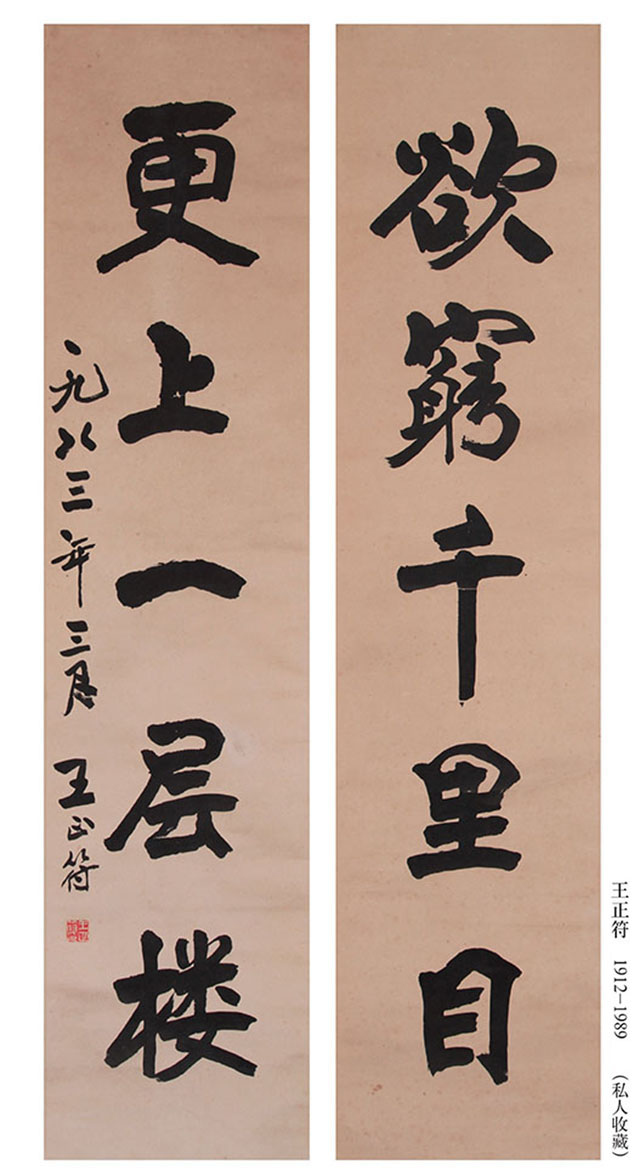 欲窮千里目
更上一层楼
一九八三年三月 王正符
王正符 1912–1989 （私人收藏）